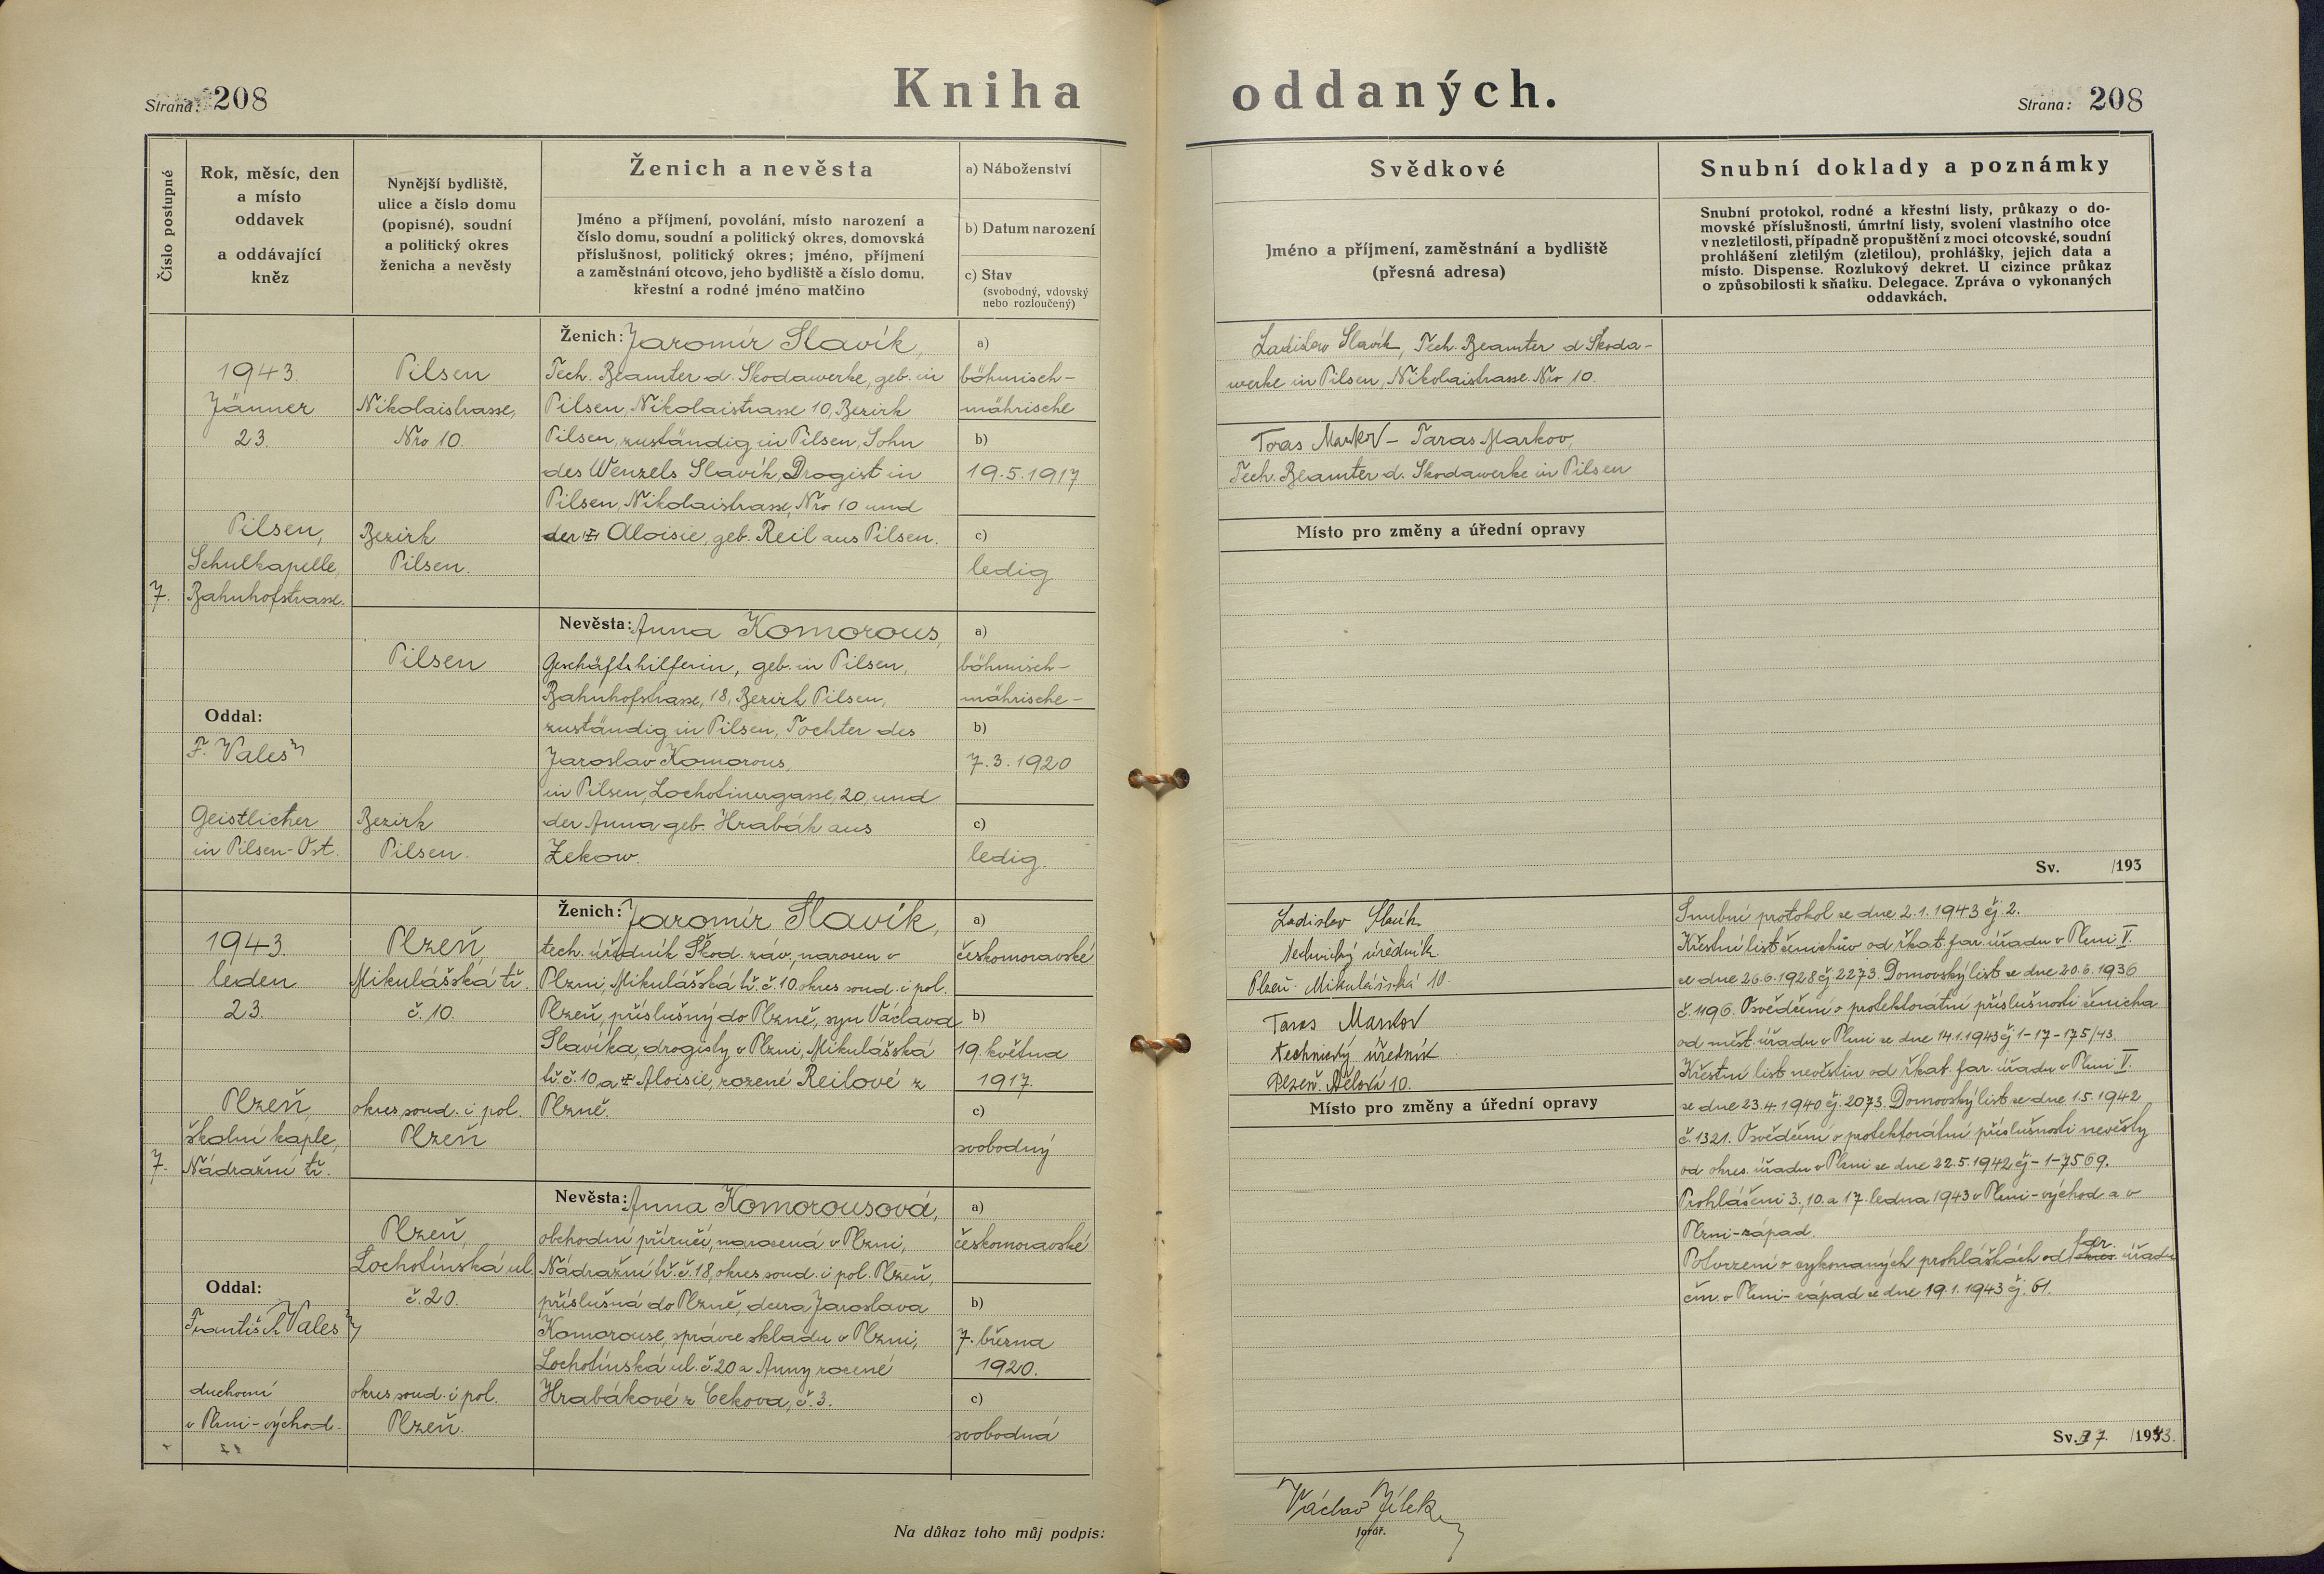 Strana: 208
Kniha oddaných.
Strana: 208
Číslo postupné
Rok, měsíc, den
a místo
oddavek
a oddávající
kněz
Nynější bydliště,
ulice a číslo domu
(popisné), soudní
a politický okres
ženicha a nevěsty
Ženich a nevěsta
Jméno a příjmení, povolání, místo narození a
číslo domu, soudní a politický okres, domovská
příslušnost, politický okres; jméno, příjmení
a zaměstnání otcovo, jeho bydliště a číslo domu,
křestní a rodné jméno matčino
a) Náboženství
b) Datum narození
c) Stav
(svobodný, vdovský
nebo rozloučený)
Svědkové
Jméno a příjmení, zaměstnání a bydliště
(přesná adresa)
Snubní doklady a poznámky
Snubní protokol, rodné a křestní listy, průkazy o do-
movské příslušnosti, úmrtní listy, svolení vlastního otce
v nezletilosti, případně propuštění z moci otcovské, soudní
prohlášení zletilým (zletilou), prohlášky, jejich data a
místo. Dispense. Rozlukový dekret. U cizince průkaz
o způsobilosti k sňatku. Delegace. Zpráva o vykonaných
oddavkách.
7.
1943.
Jänner
23.
Pilsen,
Schulkapelle,
Bahnhofstrasse.
Oddal:
F. Vales
Geistlicher
in Pilsen-Ost.
Pilsen
Nikolaistrasse,
Nro 10.
Bezirk
Pilsen.
Pilsen
Bezirk
Pilsen.
Ženich: Jaromír Slavík,
Tech. Beamter d. Skodawerke, geb. in
Pilsen, Nikolaistrasse 10, Bezirk
Pilsen, zuständig in Pilsen, Sohn
des Wenzels Slavík, Drogist in
Pilsen, Nikolaistrasse, Nro 10 und
der Aloisie, geb. Reil aus Pilsen.
Nevěsta: Anna Komorous,
Geschäftshilferin, geb. in Pilsen,
Bahnhofstrasse, 18, Bezirk Pilsen,
zuständig in Pilsen, Tochter des
Jaroslav Komorous,
in Pilsen, Lochotinergasse, 20, und
der Anna geb. Hrabák aus
Zekow.
a)
böhmisch-
mährische
b)
19.5.1917
c)
ledig
a)
böhmisch-
mährische-
b)
7.3.1920
c)
ledig.
Ladislav Slavík, Tech. Beamter d Skoda-
werke in Pilsen, Nikolaistrasse. Nro 10.
Taras Markov - Taras Markov,
Tech. Beamter d. Skodawerke in Pilsen
Místo pro změny a úřední opravy
Sv. /193
7.
1943.
leden
23.
Plzeň,
školní kaple,
Nádražní tř.
Oddal:
František Vales
duchovní
v Plzni-východ.
Plzeň,
Mikulášská tř.
č. 10.
okres soud. i pol.
Plzeň
Plzeň,
Lochotínská ul.
č. 20.
okres soud. i pol.
Plzeň.
Ženich: Jaromír Slavík,
tech. úředník Škod. záv., narozen v
Plzni, Mikulášská tř. č. 10. okres soud. i pol.
Plzeň, příslušný do Plzně, syn Václava
Slavíka, drogisty v Plzni, Mikulášská
tř. č. 10, a Aloisie, rozené Reilové z
Plzně.
Nevěsta: Anna Komorousová,
obchodní příručí, narozená v Plzni,
Nádražní tř. č. 18, okres soud. i pol. Plzeň,
příslušná do Plzně, dcera Jaroslava
Komorouse, správce skladu v Plzni,
Lochotínská ul. č. 20 a Anny rozené
Hrabákové z Cekova, č. 3.
a)
českomoravské
b)
19. května
1917.
c)
svobodný
a)
českomoravské
b)
7. března
1920.
c)
svobodná
Ladislav Slavík
technický úředník
Plzeň - Mikulášská 10.
Taras Markov
technický úředník
Plzeň. 10.
Místo pro změny a úřední opravy
Snubní protokol ze dne 2.1.1943 čj. 2.
Křestní list ženichův od řkat. far. úřadu v Plzni V.
ze dne 26.6.1928 čj. 2273. Domovský list ze dne 20.5.1936
č. 1196. Osvědčení o protektorátní příslušnosti ženicha
od měst. úřadu v Plzni ze dne 14.1.1943 čj 1-17-175/43.
Křestní list nevěstin od řkat. far. úřadu v Plzni V.
ze dne 23.4.1940 čj. 2073. Domovský list ze dne 1.5.1942
č. 1321. Osvědčení o protektorátní příslušnosti nevěsty
od okres. úřadu v Plzni ze dne 22.5.1942 čj - 1-7569.
Prohlášení 3., 10. a 17. ledna 1943 v Plzni-východ a v
Plzni-západ.
Potvrzení o vykonaných prohláškách od far. úřadu
čm. v Plzni-západ ze dne 19.1.1943 čj. 61.
Sv. 37. /1943.
Na důkaz toho můj podpis:
Václav Jílek
farář.